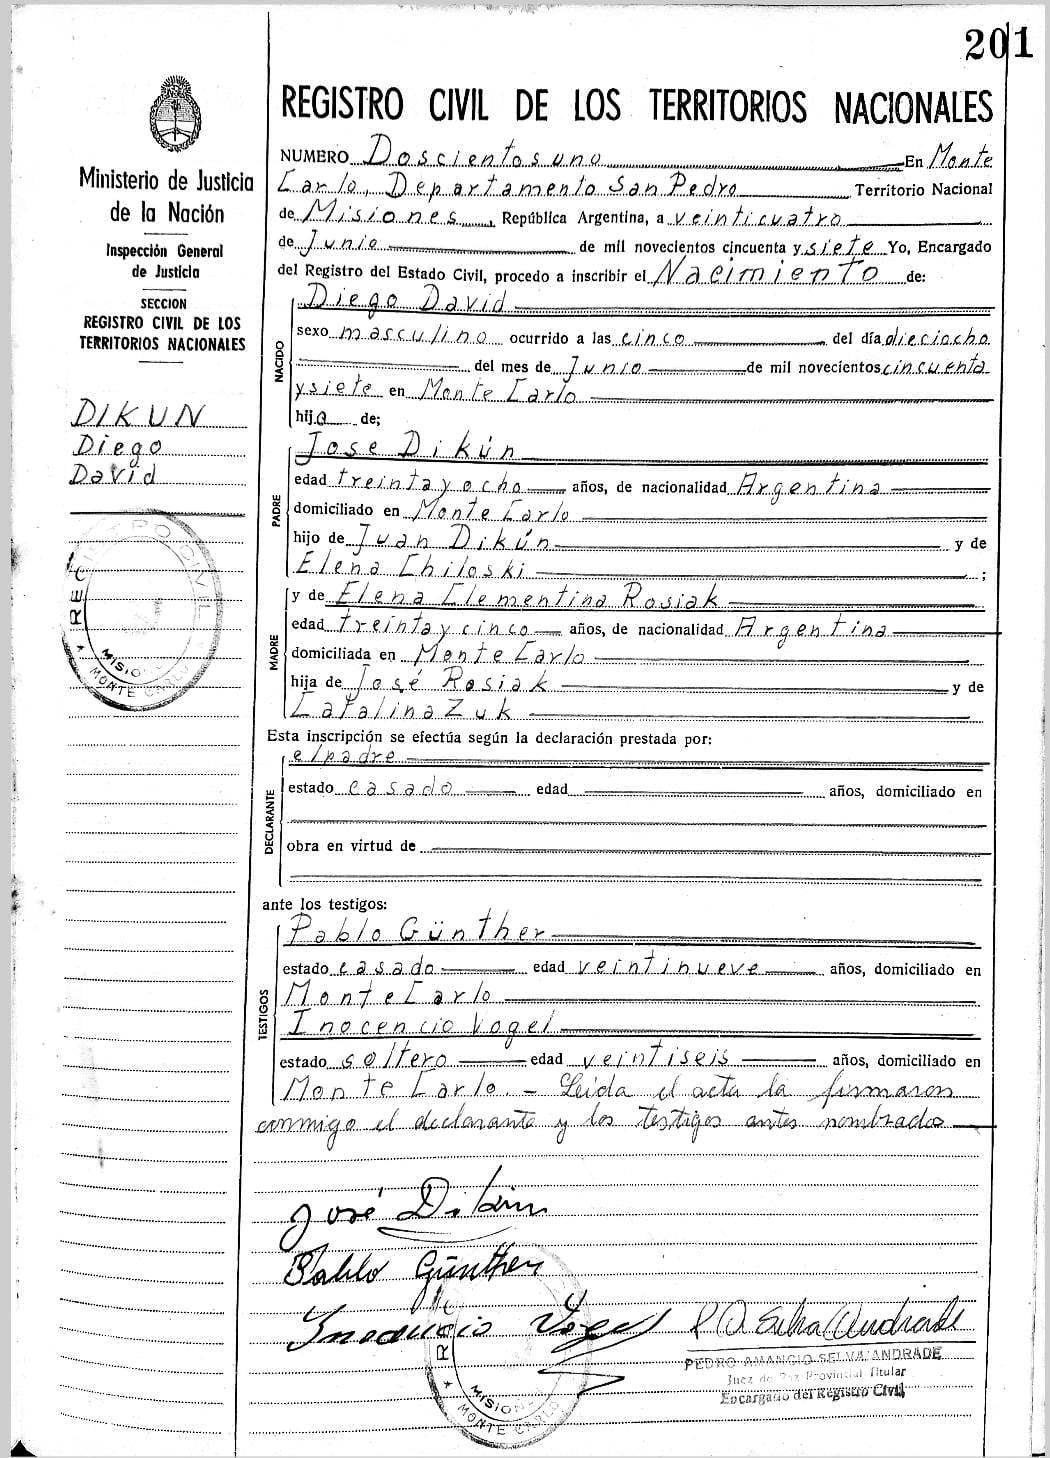 201
REGISTRO CIVIL DE LOS TERRITORIOS NACIONALES
Ministerio de Justicia
de la Nación
Inspección General
de Justicia
SECCION
REGISTRO CIVIL DE LOS
TERRITORIOS NACIONALES
DIKUN
Diego
David
REGISTRO CIVIL
MISIONES
MONTE CARLO
NUMERO Doscientos uno En Monte
Carlo, Departamento San Pedro Territorio Nacional
de Misiones, República Argentina, a veinticuatro
de Junio de mil novecientos cincuenta y siete Yo, Encargado
del Registro del Estado Civil, procedo a inscribir el Nacimiento de:
NACIDO
Diego David
sexo masculino ocurrido a las cinco del día dieciocho
del mes de Junio de mil novecientos cincuenta
y siete en Monte Carlo
hijo de;
PADRE
Jose Dikún
edad treinta y ocho años, de nacionalidad Argentina
domiciliado en Monte Carlo
hijo de Juan Dikún y de
Elena Chiloski ;
MADRE
y de Elena Clementina Rosiak
edad treinta y cinco años, de nacionalidad Argentina
domiciliada en Monte Carlo
hija de José Rosiak y de
Catalina Zuk
Esta inscripción se efectúa según la declaración prestada por:
DECLARANTE
el padre
estado casado edad años, domiciliado en
obra en virtud de
ante los testigos:
TESTIGOS
Pablo Günther
estado casado edad veintinueve años, domiciliado en
Monte Carlo
Inocencio Vogel
estado soltero edad veintiseis años, domiciliado en
Monte Carlo. - Leida el acta la firmaron
conmigo el declarante y los testigos antes nombrados
José Dikun
Pablo Günther
Inocencio Vogel
P A Selva Andrade
PEDRO AMANCIO SELVA ANDRADE
Juez de Paz Provincial Titular
Encargado del Registro Civil
MISIONES
MONTE CARLO